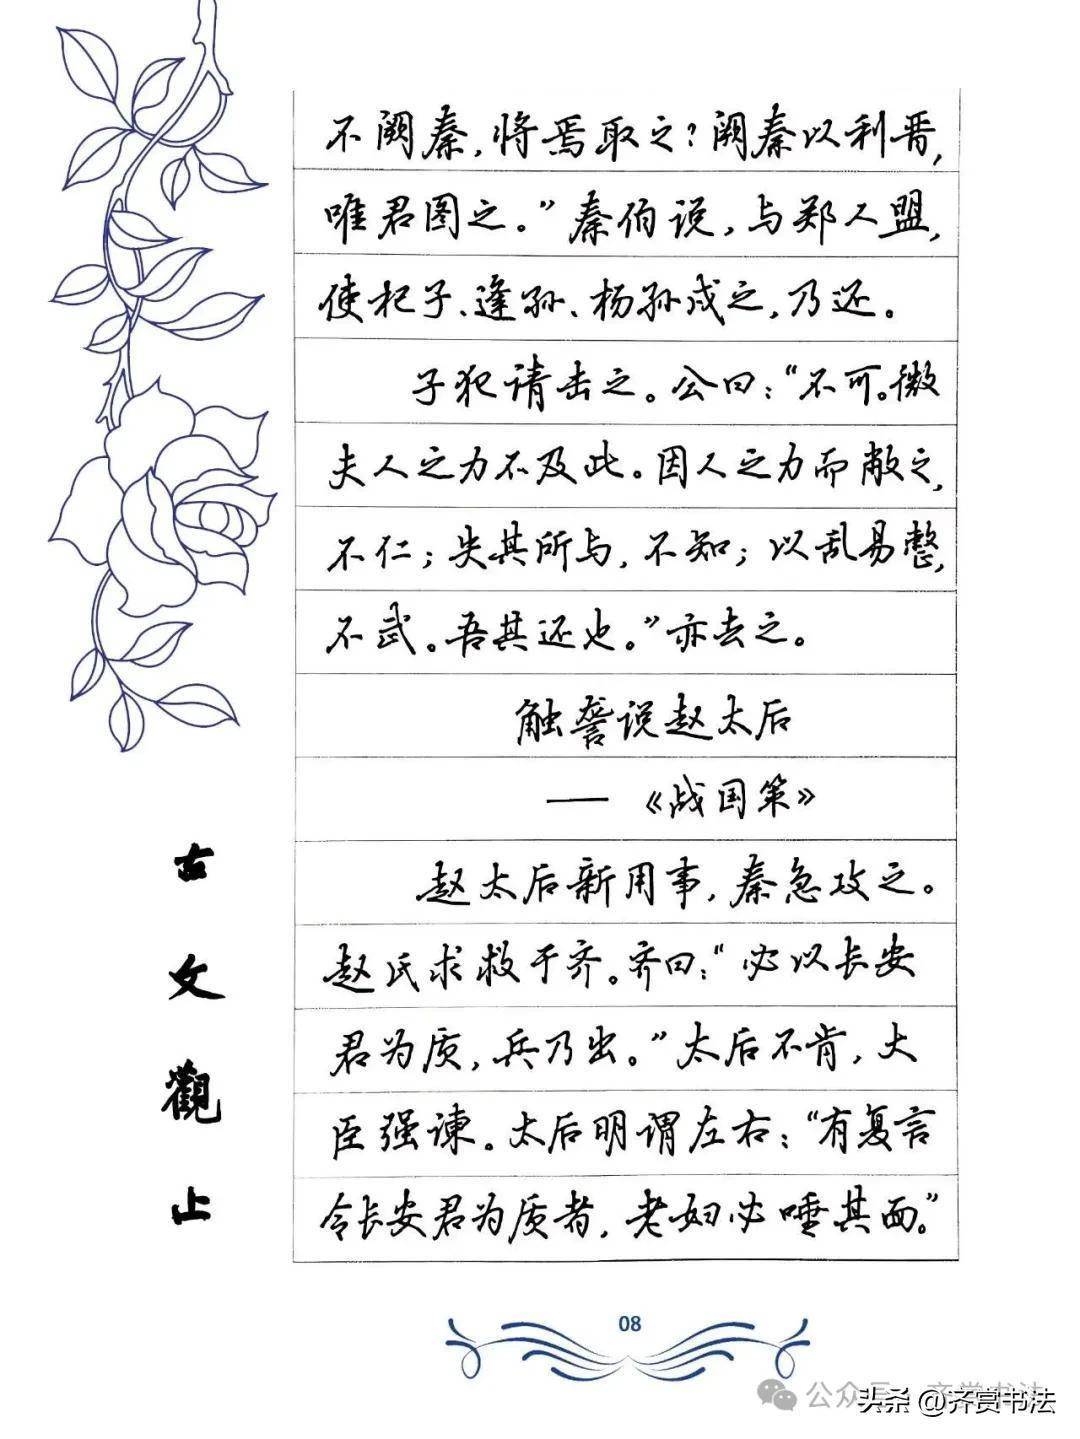 不阙秦，将焉取之？阙秦以利晋，
唯君图之。”秦伯说，与郑人盟，
使杞子、逢孙、杨孙戍之，乃还。
子犯请击之。公曰：“不可。微
夫人之力不及此。因人之力而敝之，
不仁；失其所与，不知；以乱易整，
不武。吾其还也。”亦去之。
触詟说赵太后
——《战国策》
赵太后新用事，秦急攻之。
赵氏求救于齐。齐曰：“必以长安
君为质，兵乃出。”太后不肯，大
臣强谏。太后明谓左右：“有复言
令长安君为质者，老妇必唾其面。”
古文觀止
08
公众号·齐赏书法
头条 @齐赏书法